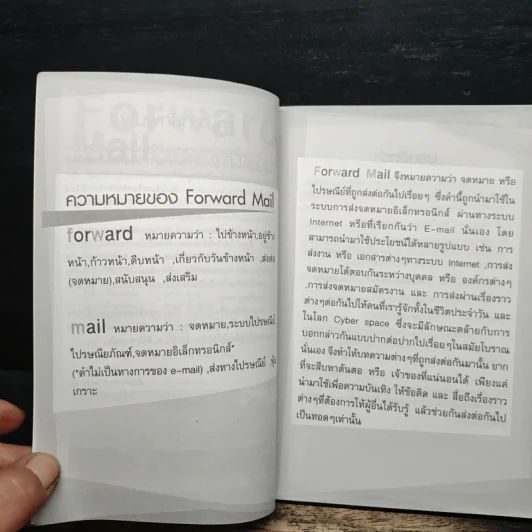 ความหมายของ Forward Mail
forward หมายความว่า : ไปข้างหน้า,อยู่ข้าง
หน้า,ก้าวหน้า,คืบหน้า ,เกี่ยวกับวันข้างหน้า ,ส่งต่อ
(จดหมาย),สนับสนุน ,ส่งเสริม
mail หมายความว่า : จดหมาย,ระบบไปรษณีย์
ไปรษณียภัณฑ์,จดหมายอิเล็กทรอนิกส์*
(*คำไม่เป็นทางการของ e-mail) ,ส่งทางไปรษณีย์ ,หุ้ม
เกราะ
Forward Mail จึงหมายความว่า จดหมาย หรือ
ไปรษณีย์ที่ถูกส่งต่อกันไปเรื่อยๆ ซึ่งคำนี้ถูกนำมาใช้ใน
ระบบการส่งจดหมายอิเล็กทรอนิกส์ ผ่านทางระบบ
Internet หรือที่เรียกกันว่า E-mail นั่นเอง โดย
สามารถนำมาใช้ประโยชน์ได้หลายรูปแบบ เช่น การ
ส่งงาน หรือ เอกสารต่างๆทางระบบ Internet ,การส่ง
จดหมายโต้ตอบกันระหว่างบุคคล หรือ องค์กรต่างๆ
,การส่งจดหมายสมัครงาน และ การส่งผ่านเรื่องราว
ต่างๆต่อกันไปให้คนที่เรารู้จักทั้งในชีวิตประจำวัน และ
ในโลก Cyber space ซึ่งจะมีลักษณะคล้ายกับการ
บอกกล่าวกันแบบปากต่อปากไปเรื่อยๆในสมัยโบราณ
นั่นเอง จึงทำให้บทความต่างๆที่ถูกส่งต่อกันมานั้น ยาก
ที่จะสืบหาต้นตอ หรือ เจ้าของที่แน่นอนได้ เพียงแค่
นำมาใช้เพื่อความบันเทิง ให้ข้อคิด และ สื่อถึงเรื่องราว
ต่างๆที่ต้องการให้ผู้อื่นได้รับรู้ แล้วช่วยกันส่งต่อกันไป
เป็นทอดๆเท่านั้น